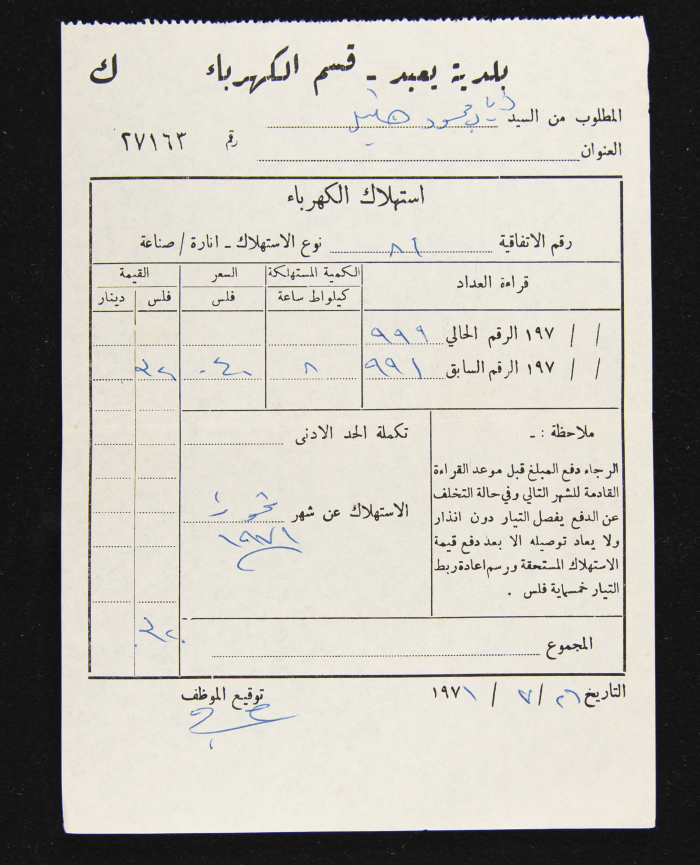 بلدية يعبد - قسم الكهرباء ك
المطلوب من السيد محمود
العنوان رقم ٢٧١٦٣
استهلاك الكهرباء
رقم الاتفاقية ٨٦ نوع الاستهلاك - انارة / صناعة
قراءة العداد الكمية المستهلكة السعر القيمة
كيلواط ساعة فلس فلس دينار
/ / ١٩٧ الرقم الحالي ٩٩٩
/ / ١٩٧ الرقم السابق ٩٩١ ٨ ٤٠ ٣٢٠
ملاحظة : - تكملة الحد الادنى
الرجاء دفع المبلغ قبل موعد القراءة
القادمة للشهر التالي وفي حالة التخلف
عن الدفع يفصل التيار دون انذار
ولا يعاد توصيله الا بعد دفع قيمة
الاستهلاك المستحقة ورسم اعادة ربط
التيار خمسماية فلس .
الاستهلاك عن شهر تموز
١٩٧١
المجموع ٣٢٠
التاريخ ٢٦ / ٧ / ١٩٧١ توقيع الموظف